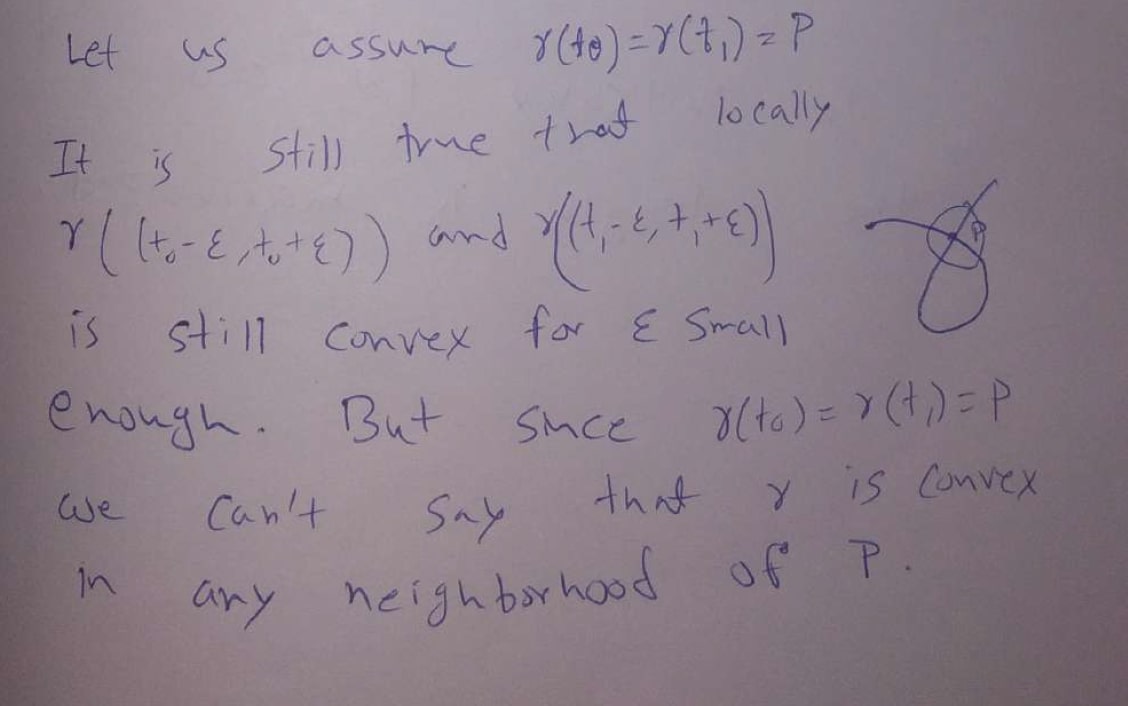 Let us assure γ(t0)=γ(t₁)=P
It is still true that locally
γ((t₀-ε,t₀+ε)) and γ((t₁-ε,t₁+ε))
is still convex for ε small
enough. But since γ(t₀)=γ(t₁)=P
we can't say that γ is convex
in any neighborhood of P.
P